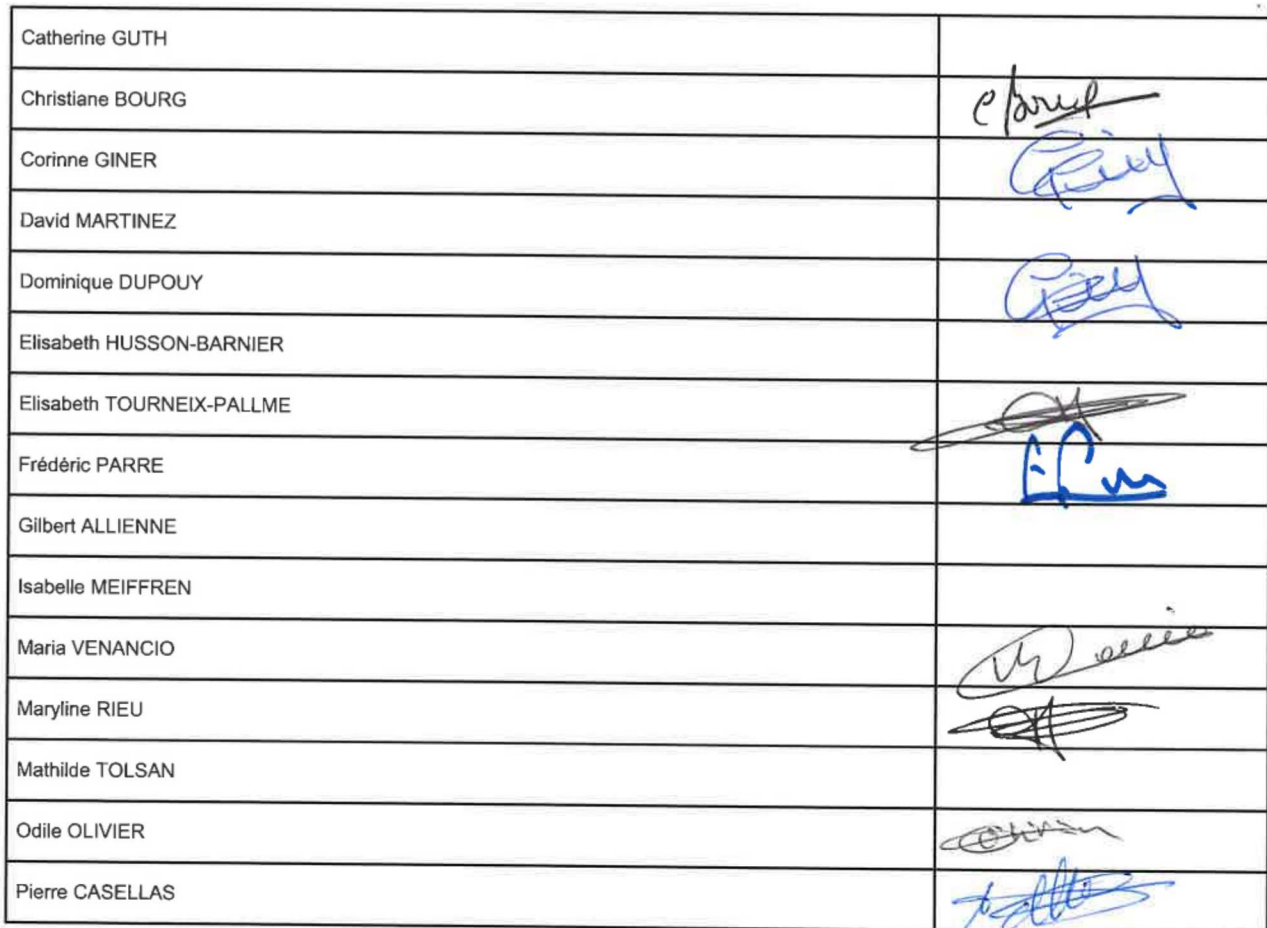 Catherine GUTH
Christiane BOURG
Corinne GINER
David MARTINEZ
Dominique DUPOUY
Elisabeth HUSSON-BARNIER
Elisabeth TOURNEIX-PALLME
Frédéric PARRE
Gilbert ALLIENNE
Isabelle MEIFFREN
Maria VENANCIO
Maryline RIEU
Mathilde TOLSAN
Odile OLIVIER
Pierre CASELLAS